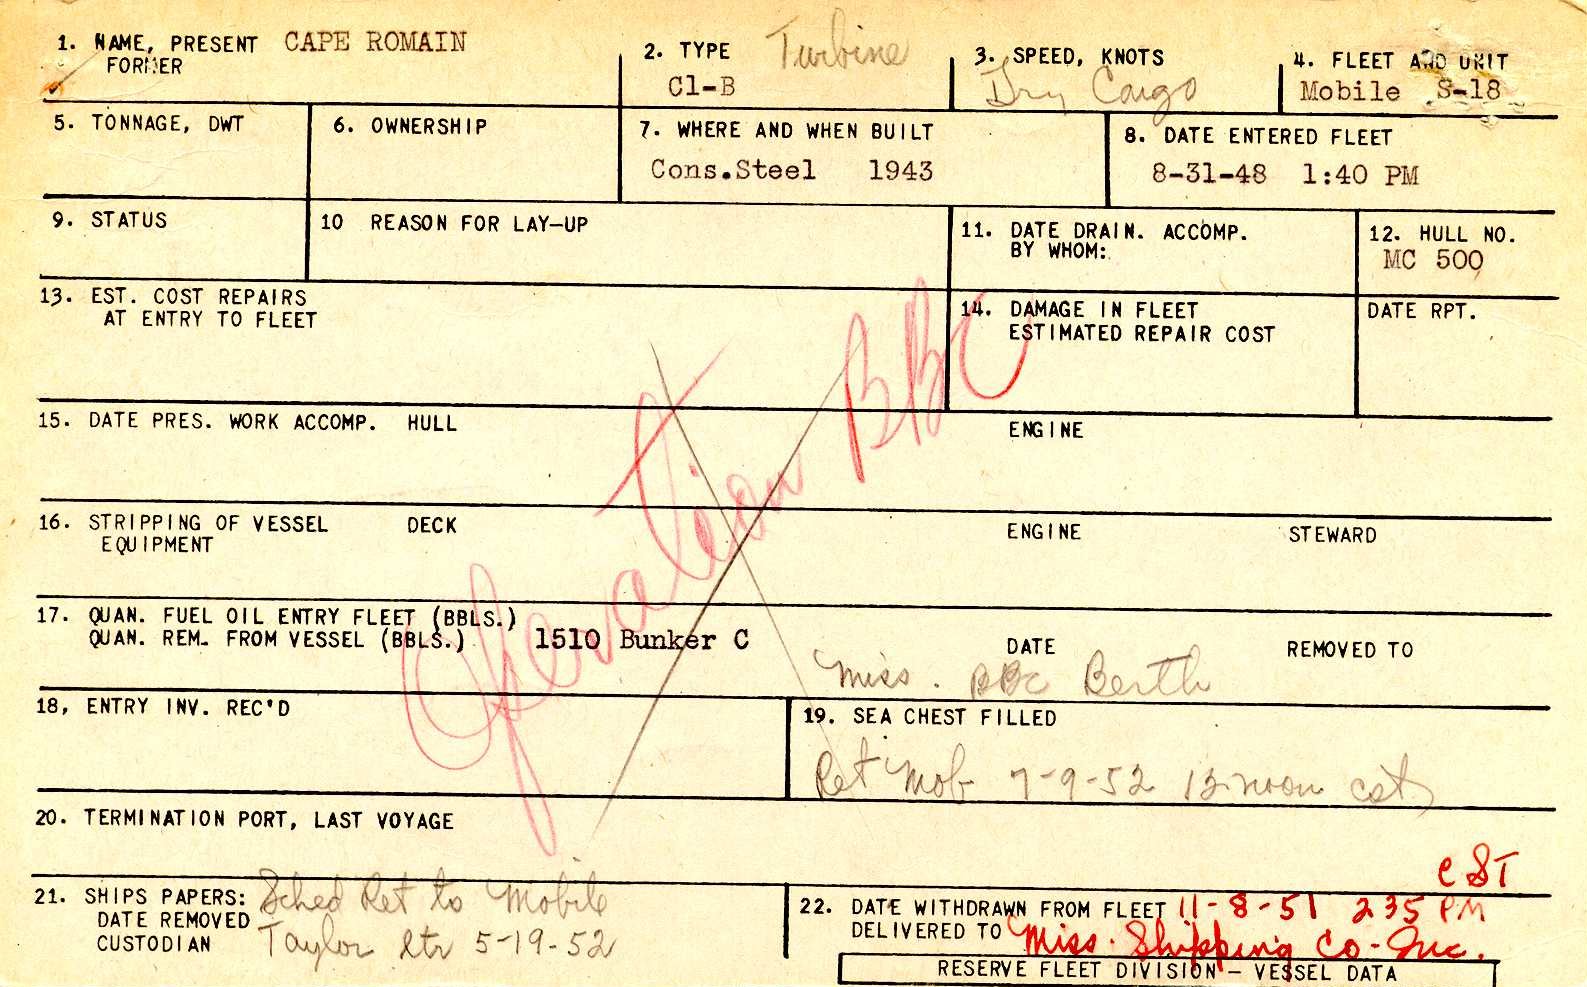 1. NAME, PRESENT CAPE ROMAIN
FORMER
2. TYPE Turbine
C1-B
3. SPEED, KNOTS
Dry Cargo
4. FLEET AND UNIT
Mobile S-18
5. TONNAGE, DWT
6. OWNERSHIP
7. WHERE AND WHEN BUILT
Cons.Steel 1943
8. DATE ENTERED FLEET
8-31-48 1:40 PM
9. STATUS
10 REASON FOR LAY-UP
11. DATE DRAIN. ACCOMP.
BY WHOM:
12. HULL NO.
MC 500
13. EST. COST REPAIRS
AT ENTRY TO FLEET
14. DAMAGE IN FLEET
ESTIMATED REPAIR COST
DATE RPT.
Operation BBC
15. DATE PRES. WORK ACCOMP. HULL ENGINE
16. STRIPPING OF VESSEL DECK ENGINE STEWARD
EQUIPMENT
17. QUAN. FUEL OIL ENTRY FLEET (BBLS.)
QUAN. REM. FROM VESSEL (BBLS.) 1510 Bunker C DATE REMOVED TO
Miss. BBC Berth
18, ENTRY INV. REC'D
19. SEA CHEST FILLED
Ret Mob 7-9-52 12 noon cst
20. TERMINATION PORT, LAST VOYAGE
21. SHIPS PAPERS: Sched Ret to Mobile
DATE REMOVED
CUSTODIAN Taylor ltr 5-19-52
CST
22. DATE WITHDRAWN FROM FLEET 11-8-51 2 35 PM
DELIVERED TO Miss. Shipping Co-Inc.
RESERVE FLEET DIVISION — VESSEL DATA